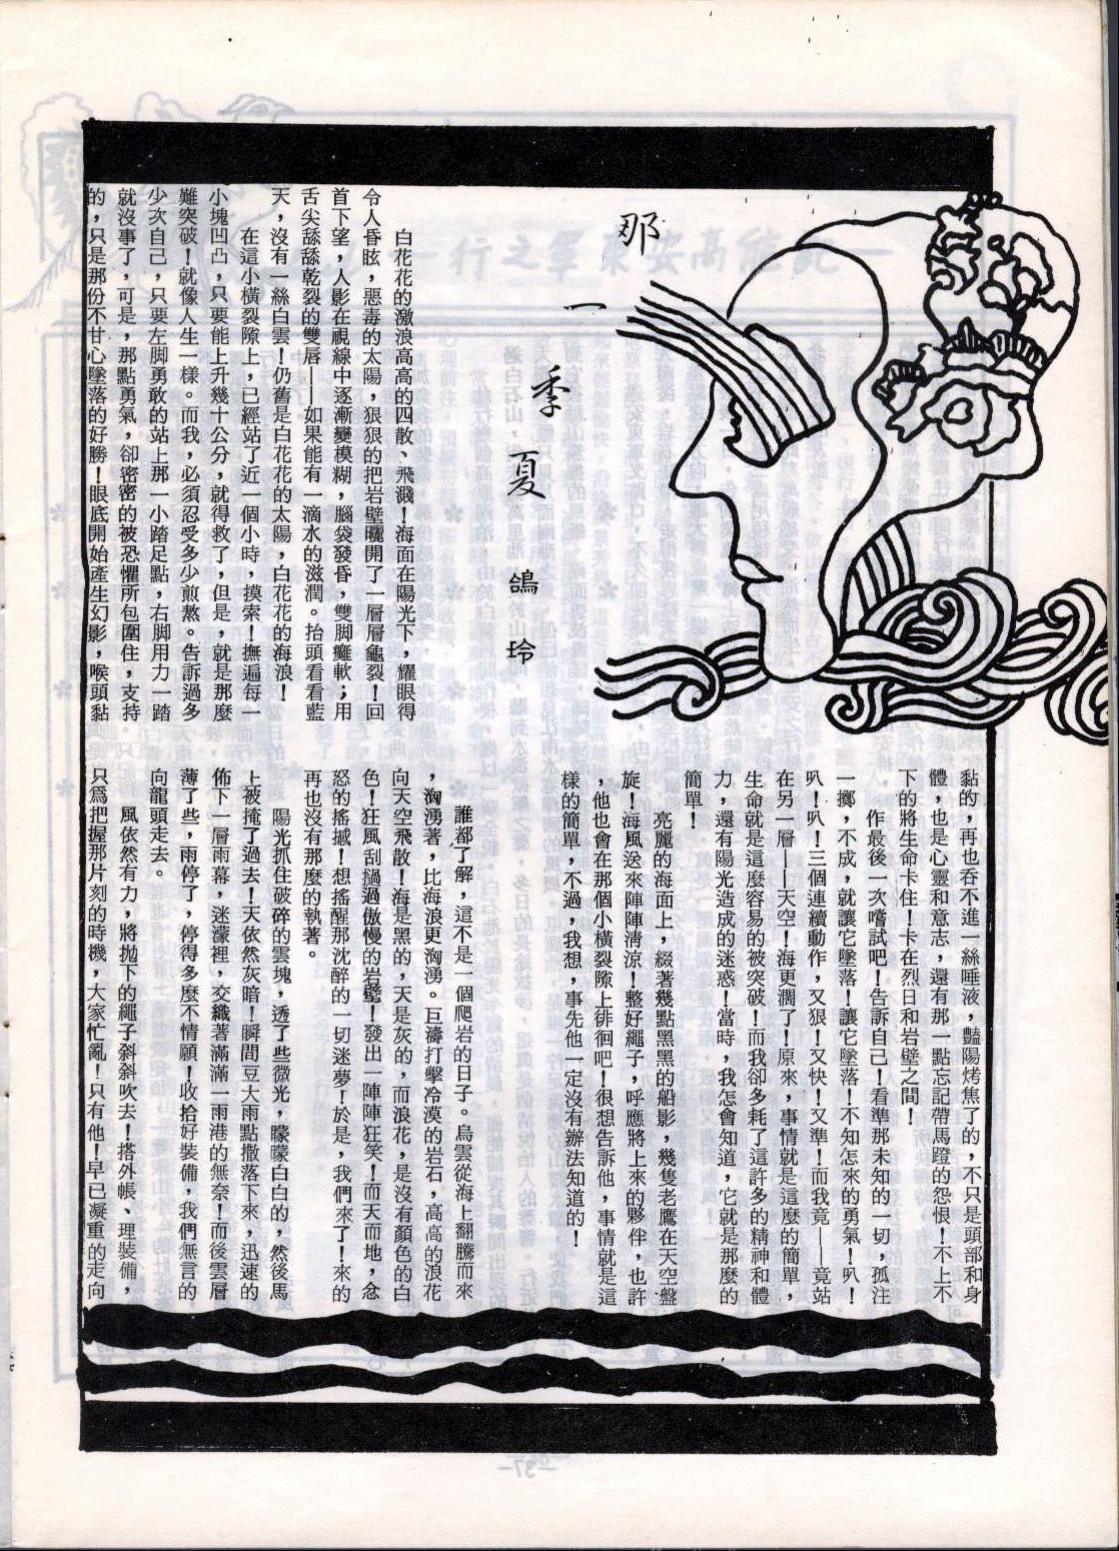 那一季夏
鴿玲
白花花的激浪高高的四散、飛濺！海面在陽光下，耀眼得
令人昏眩，惡毒的太陽，狠狠的把岩壁曬開了一層層龜裂！回
首下望，人影在視線中逐漸變模糊，腦袋發昏，雙脚癱軟；用
舌尖舔舔乾裂的雙唇——如果能有一滴水的滋潤。抬頭看看藍
天，沒有一絲白雲！仍舊是白花花的太陽，白花花的海浪！
在這小橫裂隙上，已經站了近一個小時，摸索！撫遍每一
小塊凹凸，只要能上升幾十公分，就得救了，但是，就是那麼
難突破！就像人生一樣。而我，必須忍受多少煎熬。告訴過多
少次自己，只要左脚勇敢的站上那一小踏足點，右脚用力一踏
就沒事了，可是，那點勇氣，卻密密的被恐懼所包圍住，支持
的，只是那份不甘心墜落的好勝！眼底開始產生幻影，喉頭黏
黏的，再也吞不進一絲唾液，豔陽烤焦了的，不只是頭部和身
體，也是心靈和意志，還有那一點忘記帶馬蹬的怨恨！不上不
下的將生命卡住！卡在烈日和岩壁之間！
作最後一次嚐試吧！告訴自己！看準那未知的一切，孤注
一擲，不成，就讓它墜落！讓它墜落！不知怎來的勇氣！叭！
叭！叭！三個連續動作，又狠！又快！又準！而我竟——竟站
在另一層——天空！海更濶了！原來，事情就是這麼的簡單，
生命就是這麼容易的被突破！而我卻多耗了這許多的精神和體
力，還有陽光造成的迷惑！當時，我怎會知道，它就是那麼的
簡單！
亮麗的海面上，綴著幾點黑黑的船影，幾隻老鷹在天空盤
旋！海風送來陣陣淸涼！整好繩子，呼應將上來的夥伴，也許
，他也會在那個小橫裂隙上徘徊吧！很想告訴他，事情就是這
樣的簡單，不過，我想，事先他一定沒有辦法知道的！
誰都了解，這不是一個爬岩的日子。烏雲從海上翻騰而來
，洶湧著，比海浪更洶湧。巨濤打擊冷漠的岩石，高高的浪花
向天空飛散！海是黑的，天是灰的，而浪花，是沒有顏色的白
色！狂風刮搧過傲慢的岩壁！發出一陣陣狂笑！而天而地，忿
怒的搖撼！想搖醒那沈醉的一切迷夢！於是，我們來了！來的
再也沒有那麼的執著。
陽光抓住破碎的雲塊，透了些微光，矇矇白白的，然後馬
上被掩了過去！天依然灰暗！瞬間豆大雨點撒落下來，迅速的
佈下一層雨幕，迷濛裡，交織著滿滿一雨港的無奈！而後雲層
薄了些，雨停了，停得多麼不情願！收拾好裝備，我們無言的
向龍頭走去。
風依然有力，將拋下的繩子斜斜吹去！搭外帳、理裝備，
只爲把握那片刻的時機，大家忙亂！只有他！早已凝重的走向